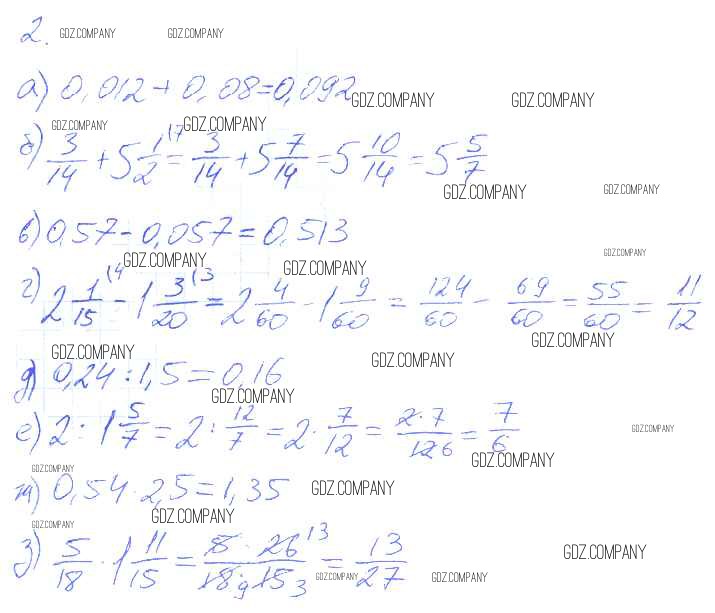 2. GDZ.COMPANY GDZ.COMPANY
а) 0,012 + 0,08 = 0,092 GDZ.COMPANY GDZ.COMPANY
GDZ.COMPANY GDZ.COMPANY
б) 3/14 + 5 1/2 (7 = 3/14 + 5 7/14 = 5 10/14 = 5 5/7
GDZ.COMPANY GDZ.COMPANY
в) 0,57 - 0,057 = 0,513
GDZ.COMPANY GDZ.COMPANY GDZ.COMPANY
г) 2 1/15 (4 - 1 3/20 (3 = 2 4/60 - 1 9/60 = 124/60 - 69/60 = 55/60 = 11/12
GDZ.COMPANY GDZ.COMPANY GDZ.COMPANY
д) 0,24 : 1,5 = 0,16
GDZ.COMPANY
е) 2 : 1 5/7 = 2 : 12/7 = 2 · 7/12 = 2·7/12 6 = 7/6
GDZ.COMPANY GDZ.COMPANY GDZ.COMPANY
ж) 0,54 · 2,5 = 1,35 GDZ.COMPANY
GDZ.COMPANY GDZ.COMPANY
з) 5/18 · 1 11/15 = 5 · 26 13/18 9 15 3 = 13/27
GDZ.COMPANY GDZ.COMPANY GDZ.COMPANY